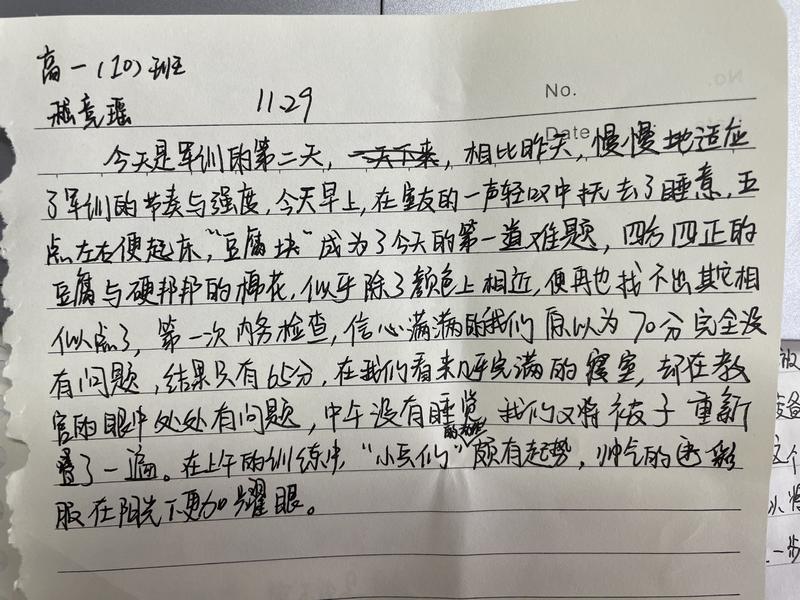 高一(10)班
11.29
No.
Date
今天是军训的第二天，一天下来，相比昨天，慢慢地适应
了军训的节奏与强度，今天早上，在室友的一声轻叹中抚去了睡意，五
点左右便起床，"豆腐块"成为了今天的第一道难题，四方四正的
豆腐与硬邦邦的棉花，似乎除了颜色上相近，便再也找不出其它相
似点了，第一次内务检查，信心满满的我们原以为70分完全没
有问题，结果只有65分，在我们看来几乎完满的寝室，却在教
官的眼中处处有问题，中午没有睡觉，我们又将被子重新
叠了一遍。在上午的训练中，"小兵们"颇有起势，帅气的迷彩
服在阳光下更加耀眼。